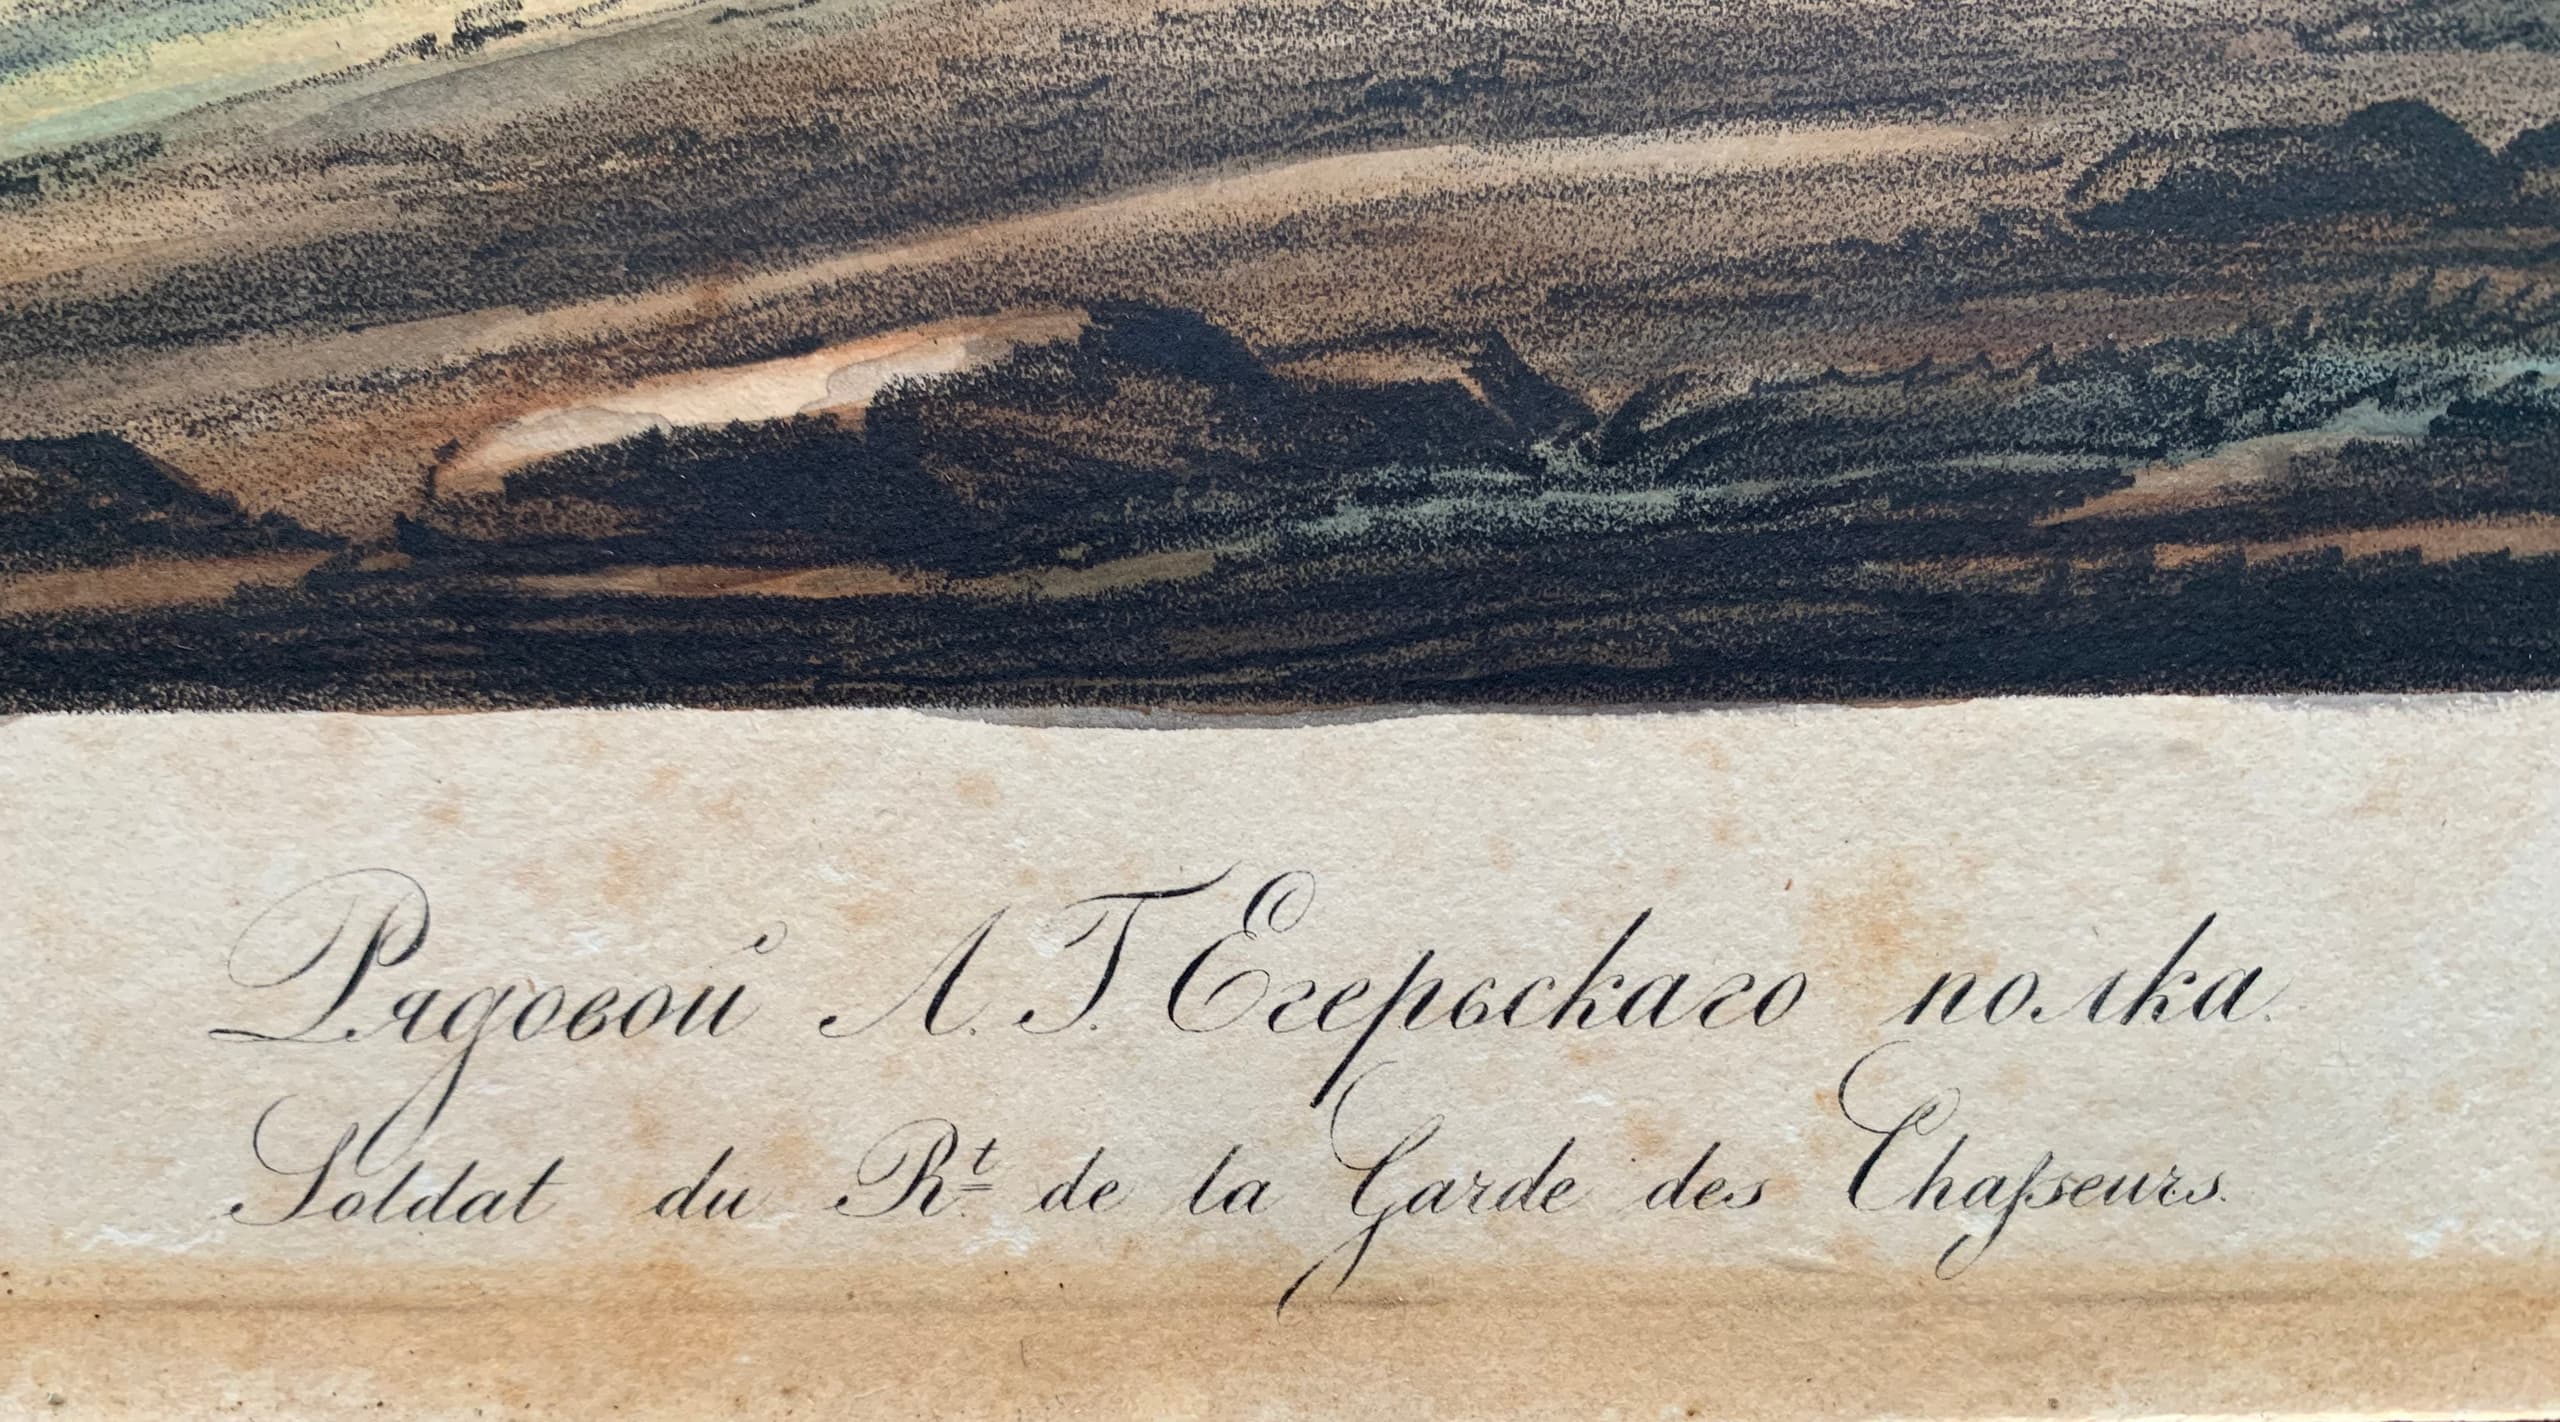 Рядовой Л. Г. Егерьскаго полка.
Soldat du Rt. de la Garde des Chaſseurs.